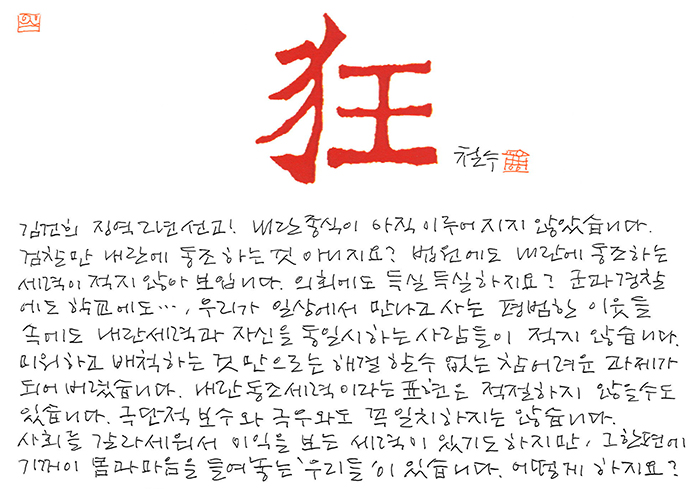 狂
철수
김건희 징역 2년 선고! 내란종식이 아직 이루어지지 않았습니다.
검찰만 내란에 동조하는 것 아니지요? 법원에도 내란에 동조하는
세력이 적지 않아 보입니다. 의회에도 득실득실하지요? 군과 경찰
에도 학교에도···, 우리가 일상에서 만나고 사는 평범한 이웃들
속에도 내란세력과 자신을 동일시하는 사람들이 적지 않습니다.
미워하고 배척하는 것만으로는 해결할 수 없는 참 어려운 과제가
되어버렸습니다. 내란동조세력이라는 표현은 적절하지 않을 수도
있습니다. 극단적 보수와 극우와도 꼭 일치하지는 않습니다.
사회를 갈라세워서 이익을 보는 세력이 있기도 하지만, 그 한편에
기꺼이 몸과 마음을 들여놓는 '우리들'이 있습니다. 어떻게 하지요?